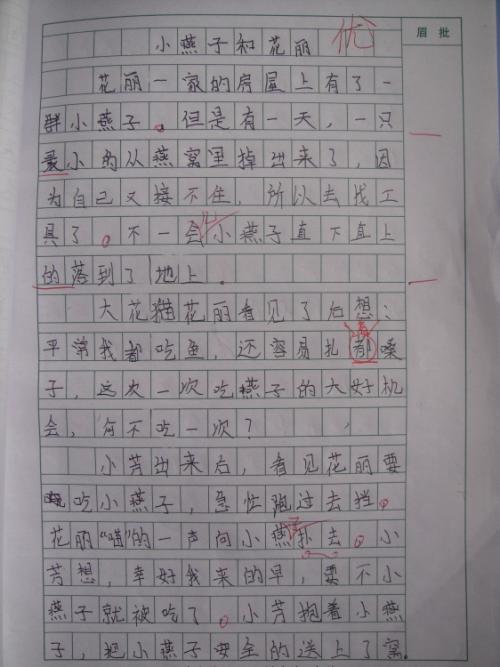 小燕子和花丽
优
眉批
花丽一家的房屋上有了一
群小燕子。但是有一天，一只
最小的从燕窝里掉出来了，因
为自己又接不住，所以去找工
具了。不一会小燕子直下直上
的落到了地上。
大花猫花丽看见了后想：
平常我都吃鱼，还容易扎都嗓
子，这次一次吃燕子的大好机
会，何不吃一次？
小芳出来后，看见花丽要
吃小燕子，急忙跑过去挡。
花丽“喵”的一声向小燕扑去。小
子
芳想，幸好我来的早，要不小
燕子就被吃了。小芳抱着小燕
子，把小燕子安全的送上了窝。